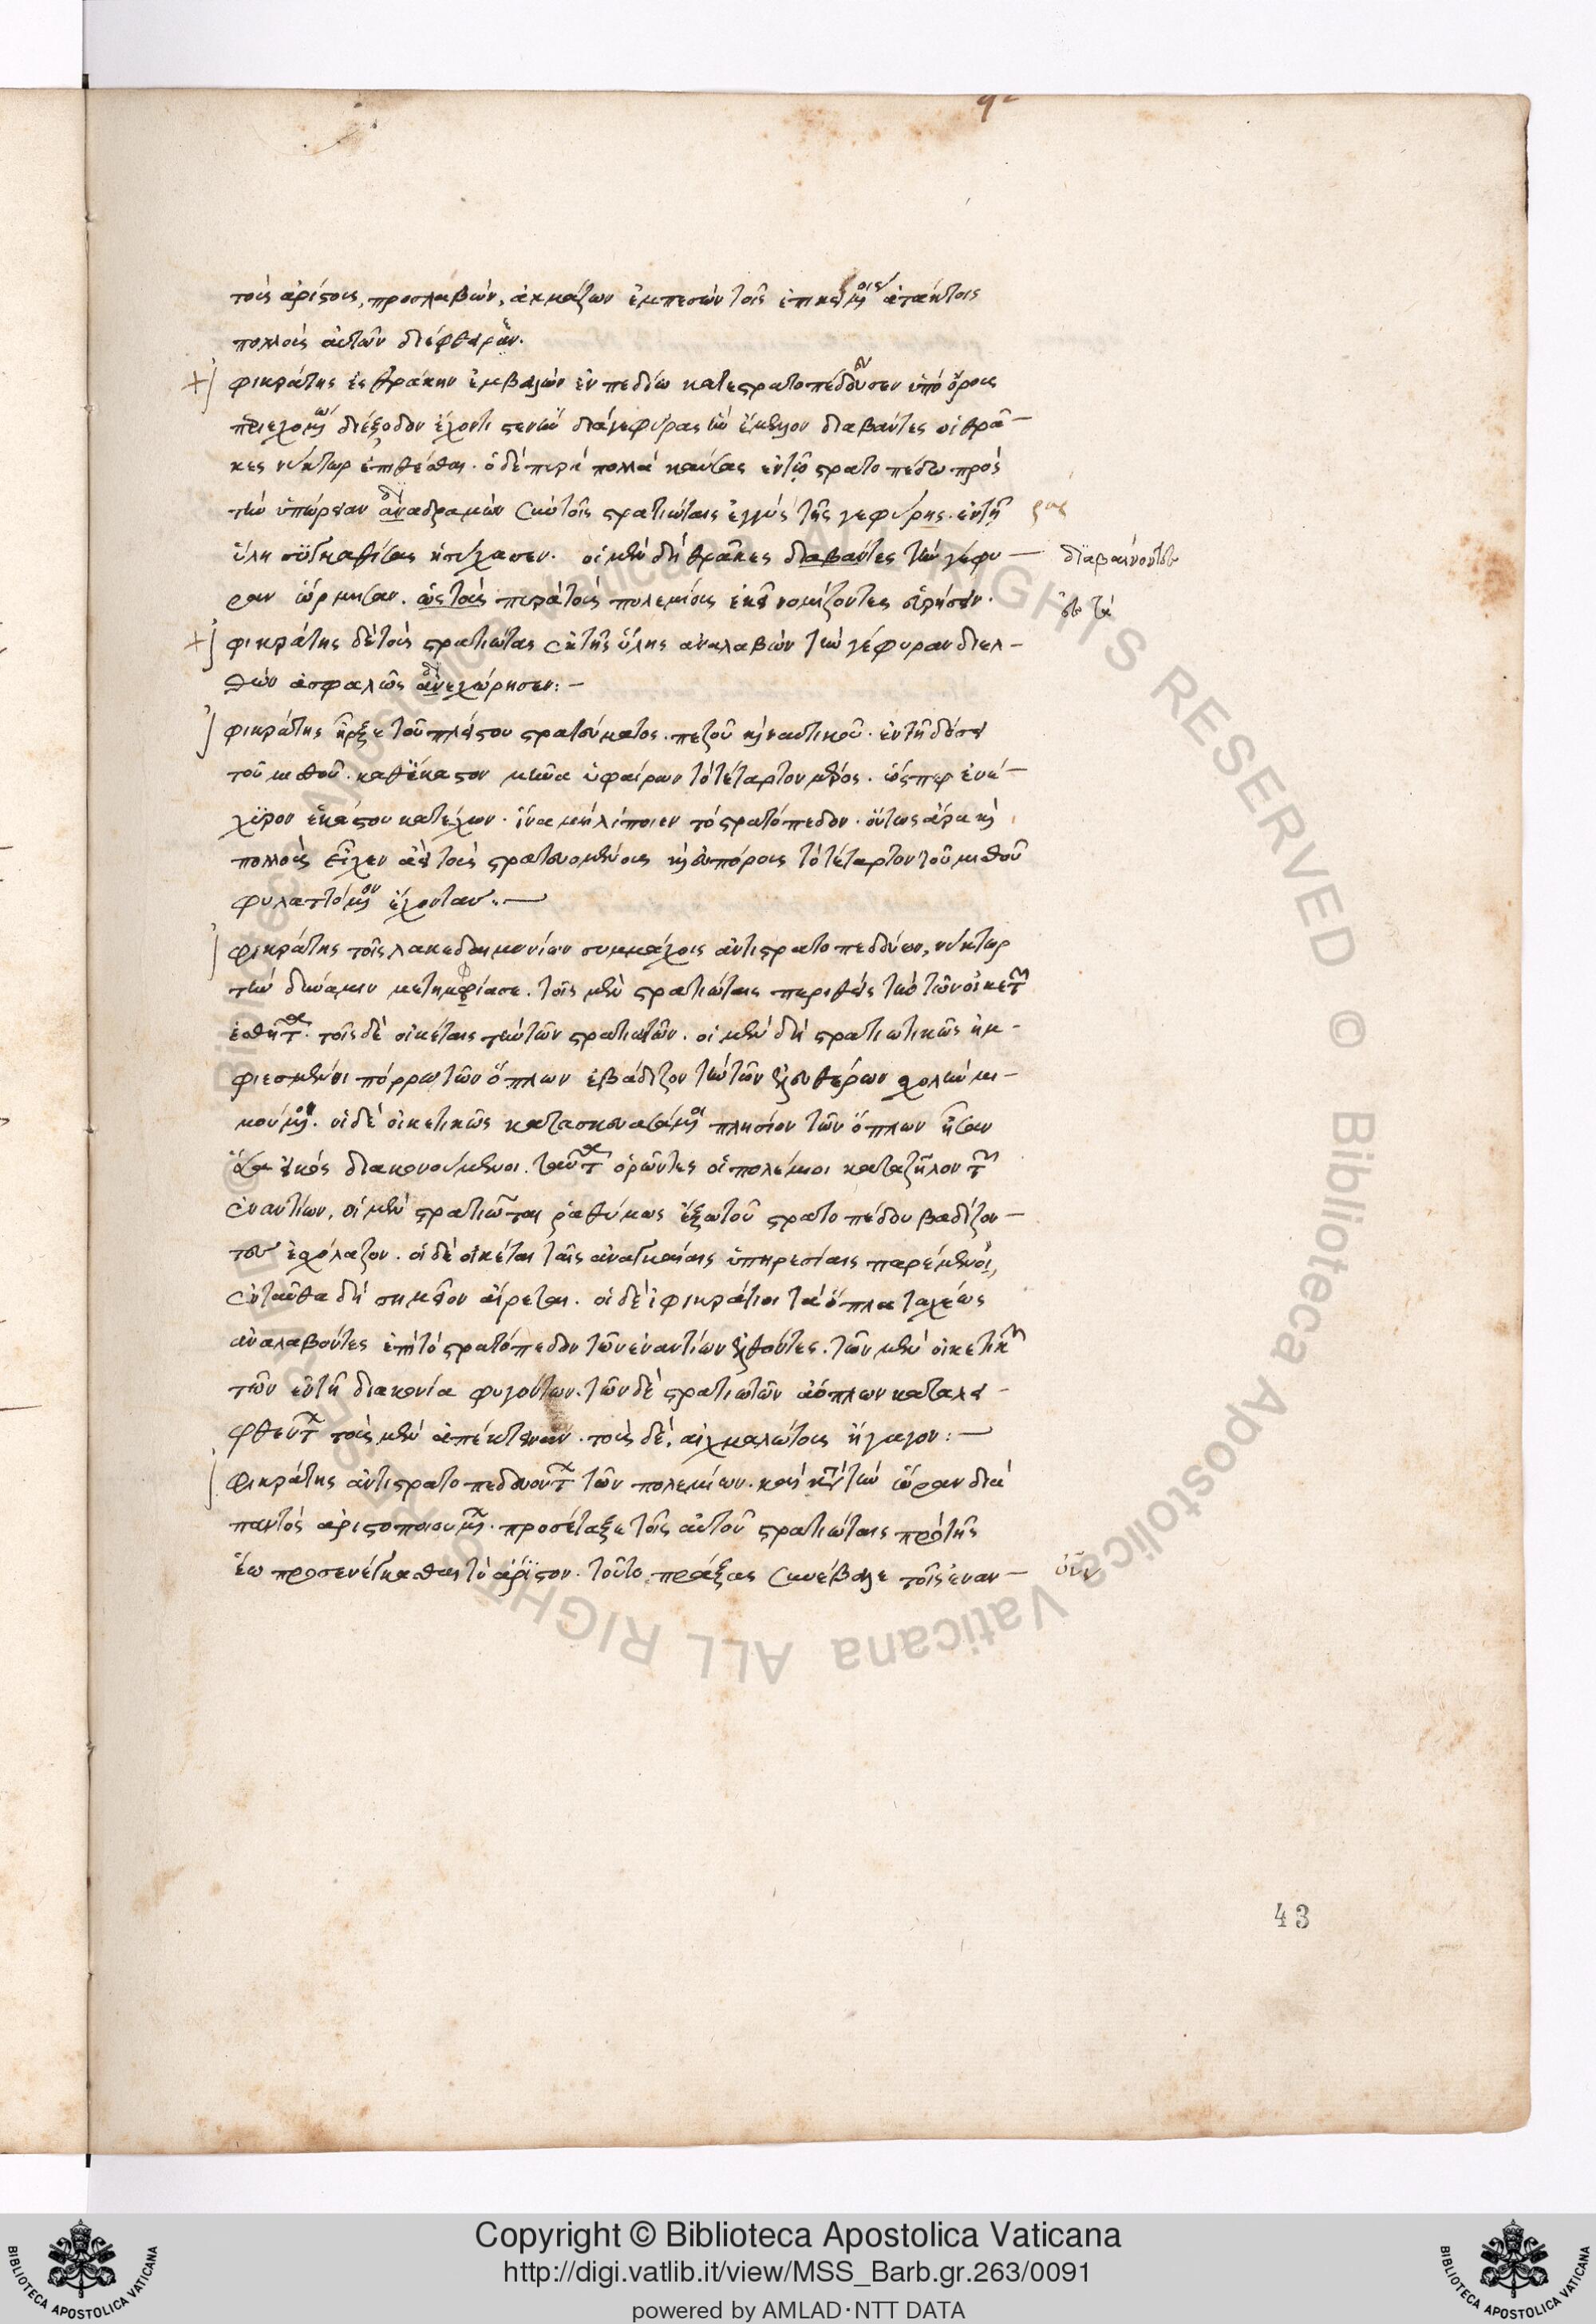 τοὺς ἀρίστους, προσλαβὼν, ἀκμάζων ἐμπεσὼν τοῖς ἐπικειμένοις ἀτάκτοις
πολλοὺς αὐτῶν διέφθειρεν.
φικράτης ἐς θράκην ἐμβαλὼν ἐν πεδίω κατεστρατοπέδευσεν ὑπὸ ὄρους
περιεχομένω διέξοδον ἔχοντι στενὴν διὰ γεφύρας ἣν ἔμελλον διαβάντες οἱ θρᾶ-
κες νύκτωρ ἐπιθέσθαι. ὁ δὲ πυρὰ πολλὰ καύσας ἐν τῷ στρατοπέδω πρὸς
τὴν ὑπώρειαν ἀναδραμὼν σὺν τοῖς στρατιώταις ἐγγὺς τῆς γεφύρης. ἐν τῇ
ρας
ὕλη συγκαθίσας ἡσύχασεν. οἱ μὲν δὴ θρᾶκες διαβάντες τὴν γέφυ-
διαβαίνοντες
ραν ὥρμησαν. ὡς τοὺς πυρὰ τοὺς πολεμίους ἐκεῖ νομίζοντες εὑρήσειν.
φικράτης δὲ τοὺς στρατιώτας ἐκ τῆς ὕλης ἀναλαβὼν τὴν γέφυραν διελ-
θὼν ἀσφαλῶς ἀνεχώρησεν:-
φικράτης ἦρξε τοῦ πλείστου στρατεύματος. πεζοῦ καὶ ναυτικοῦ. ἐν τῇ δόσει
τοῦ μισθοῦ. καθέκαστον μῆνα ὑφαίρων τὸ τέταρτον μέρος. ὥσπερ ἐνέ-
χυρον ἑκάστου κατέχων. ἵνα μὴ λίποιεν τὸ στρατόπεδον. οὕτως ἄρα καὶ
πολλοὺς εἶχεν ἀεὶ τοὺς στρατευομένους καὶ εὐπόρους τὸ τέταρτον τοῦ μισθοῦ
φυλαττόμενον ἔχοντας.-
φικράτης τοῖς λακεδαιμονίων συμμάχοις ἀντιστρατοπεδεύων, νύκτωρ
τὴν δύναμιν μετημφίασε. τοῖς μὲν στρατιώταις περιθεὶς τὴν τῶν οἰκετῶν
ἐσθῆτα. τοῖς δὲ οἰκέταις τὴν τῶν στρατιωτῶν. οἱ μὲν δὴ στρατιωτικῶς ἠμ-
φιεσμένοι πόρρω τῶν ὅπλων ἐβάδιζον τὴν τῶν ἐλευθέρων σχολὴν μι-
μούμενοι. οἱ δὲ οἰκετικῶς κατασκευασάμενοι πλησίον τῶν ὅπλων ἦσαν
οἷα εἰκὸς διακονούμενοι. ταῦτα ὁρῶντες οἱ πολέμιοι κατεζήλουν τῶν
ἐναντίων. οἱ μὲν στρατιῶται ῥαθύμως ἔξω τοῦ στρατοπέδου βαδίζον-
τες ἐσχόλαζον. οἱ δὲ οἰκέται ταῖς ἀναγκαίαις ὑπηρεσίαις παρέμενον,
ἐνταῦθα δὴ σημεῖον αἴρεται. οἱ δὲ ἰφικράτιοι τὰ ὅπλα ταχέως
ἀναλαβόντες ἐπὶ τὸ στρατόπεδον τῶν ἐναντίων ἐλθόντες. τῶν μὲν οἰκετικῶν
τῶν ἐν τῇ διακονία φυγόντων. τῶν δὲ στρατιωτῶν ἀόπλων καταλει-
φθέντων τοὺς μὲν ἀπέκτειναν. τοὺς δὲ, αἰχμαλώτους ἤγαγον:-
φικράτης ἀντιστρατοπεδευόντων τῶν πολεμίων. καὶ κατὰ τὴν ὥραν διὰ
παντὸς ἀριστοποιουμένων. προσέταξε τοῖς αὐτοῦ στρατιώταις πρὸ τῆς
ἕω προσενέγκασθαι τὸ ἄριστον. τοῦτο πράξας συνέβαλε τοῖς ἐναν-
οὖν
43
Copyright © Biblioteca Apostolica Vaticana
http://digi.vatlib.it/view/MSS_Barb.gr.263/0091
powered by AMLAD·NTT DATA
BIBLIOTECA APOSTOLICA VATICANA
BIBLIOTECA APOSTOLICA VATICANA
© Biblioteca Apostolica Vaticana ALL RIGHTS RESERVED © Biblioteca Apostolica Vaticana ALL RIGHTS RESERVED